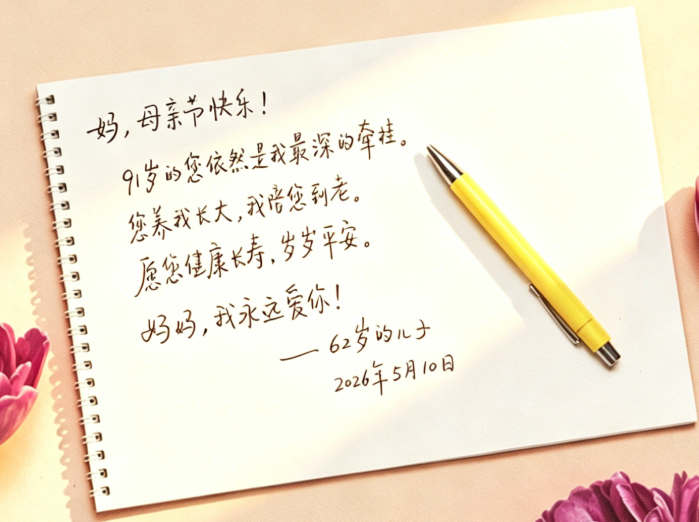 妈，母亲节快乐！
91岁的您依然是我最深的牵挂。
您养我长大，我陪您到老。
愿您健康长寿，岁岁平安。
妈妈，我永远爱你！
—— 62岁的儿子
2026年5月10日